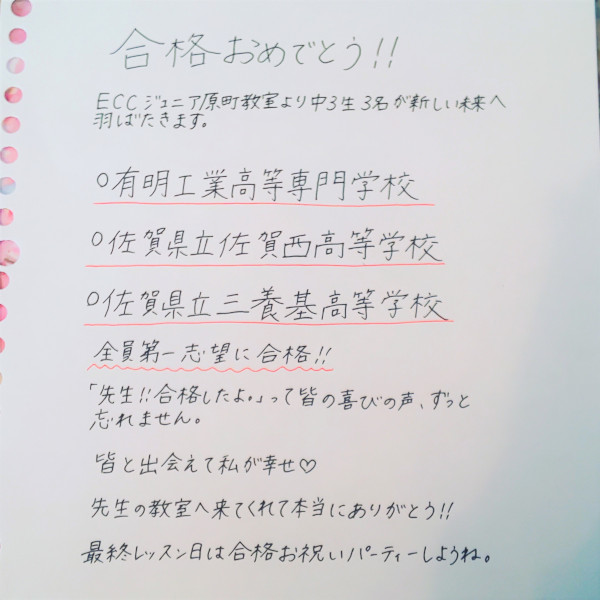 合格おめでとう!!
ECCジュニア原町教室より中3生3名が新しい未来へ
羽ばたきます。
○有明工業高等専門学校
○佐賀県立佐賀西高等学校
○佐賀県立三養基高等学校
全員第一志望に合格!!
「先生!!合格したよ。」って皆の喜びの声、ずっと
忘れません。
皆と出会えて私が幸せ♡
先生の教室へ来てくれて本当にありがとう!!
最終レッスン日は合格お祝いパーティーしようね。